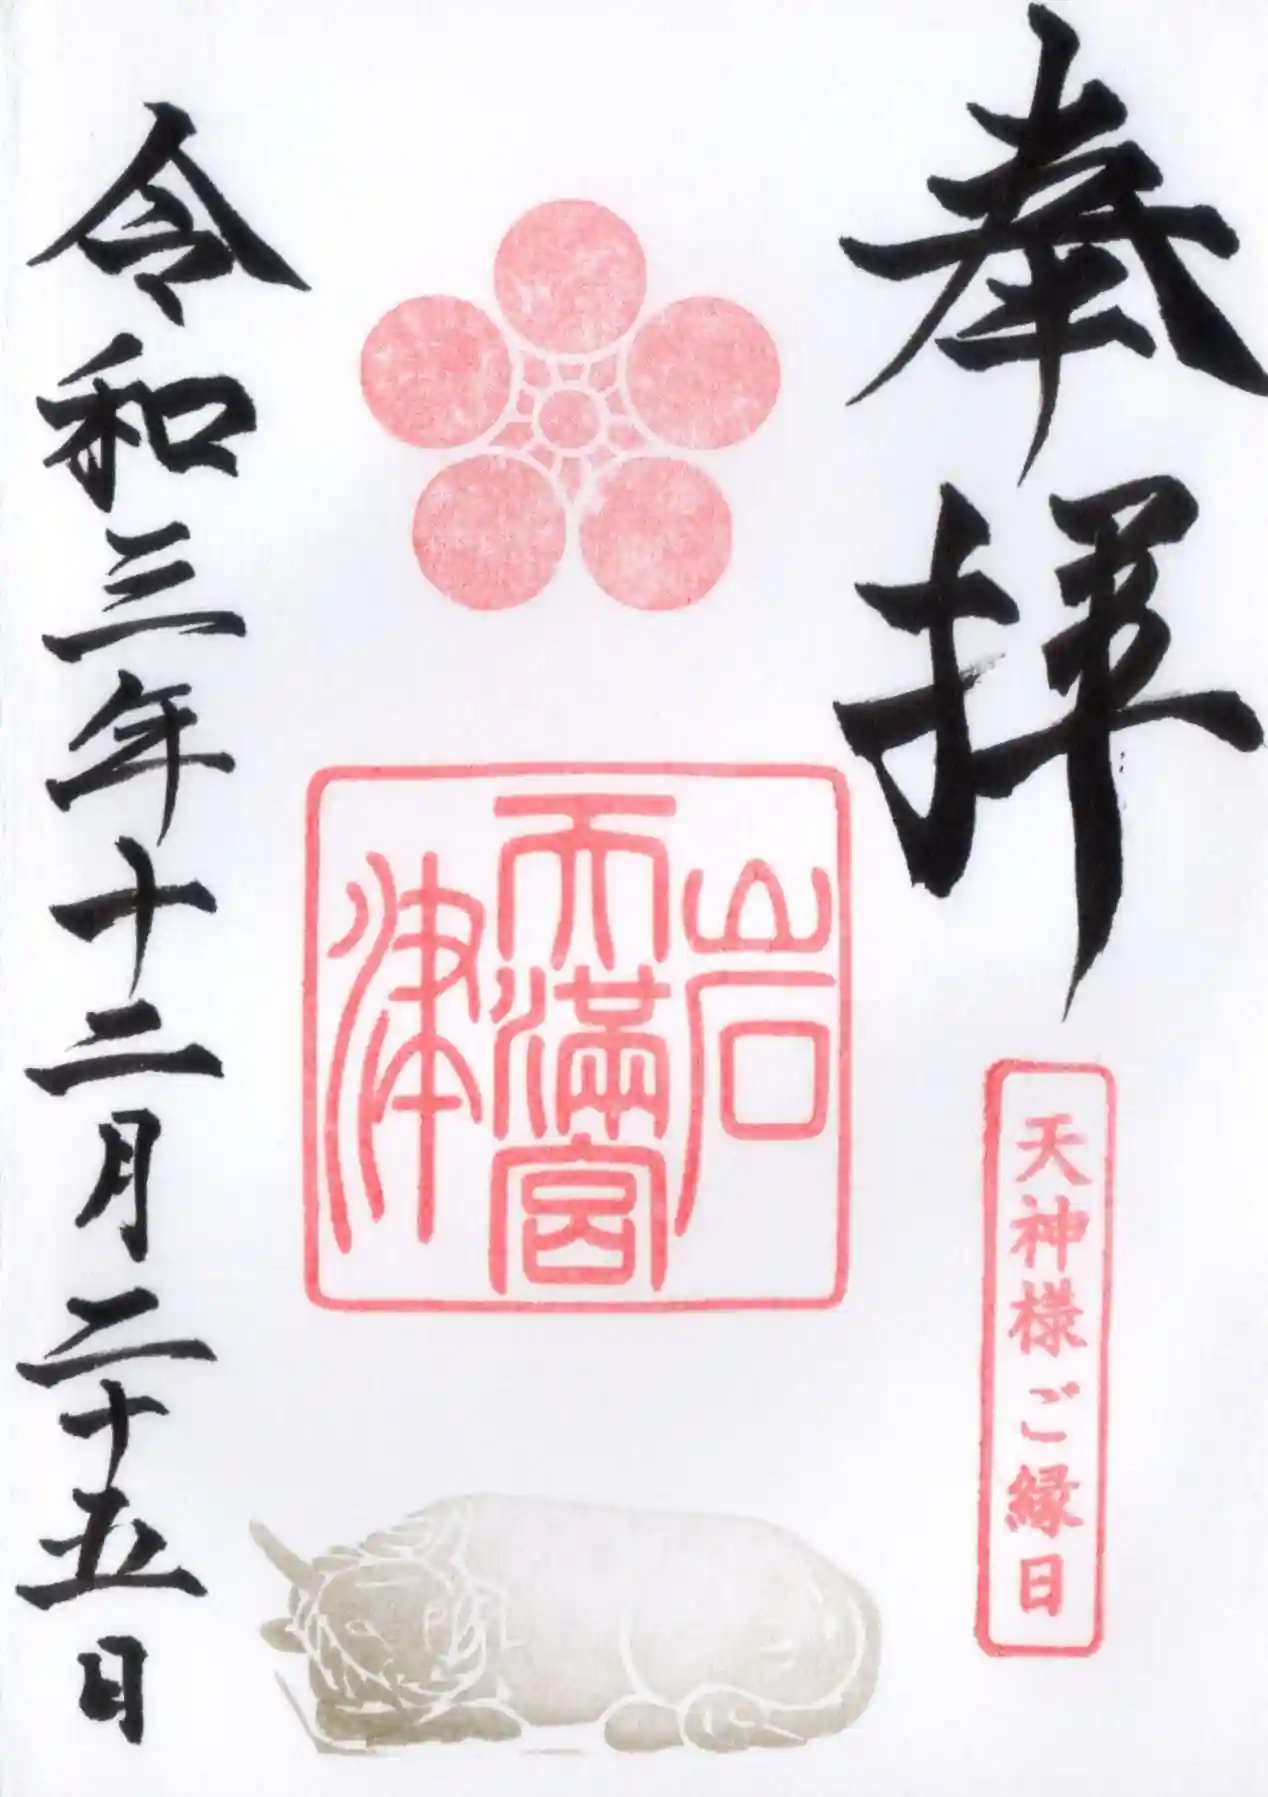 奉拝
天神様ご縁日
岩
天満宮
津
令和三年十二月二十五日